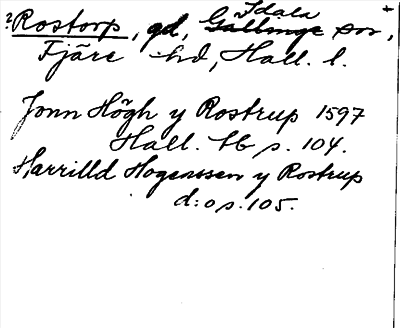 ? Rostorp, gd, Gällinge Idala sn,
Fjäre hd, Hall. l.
Jonn Högh y Rostrup 1597
Hall. tb s. 104.
Harrilld Hogenssen y Rostrup
d:o s. 105.